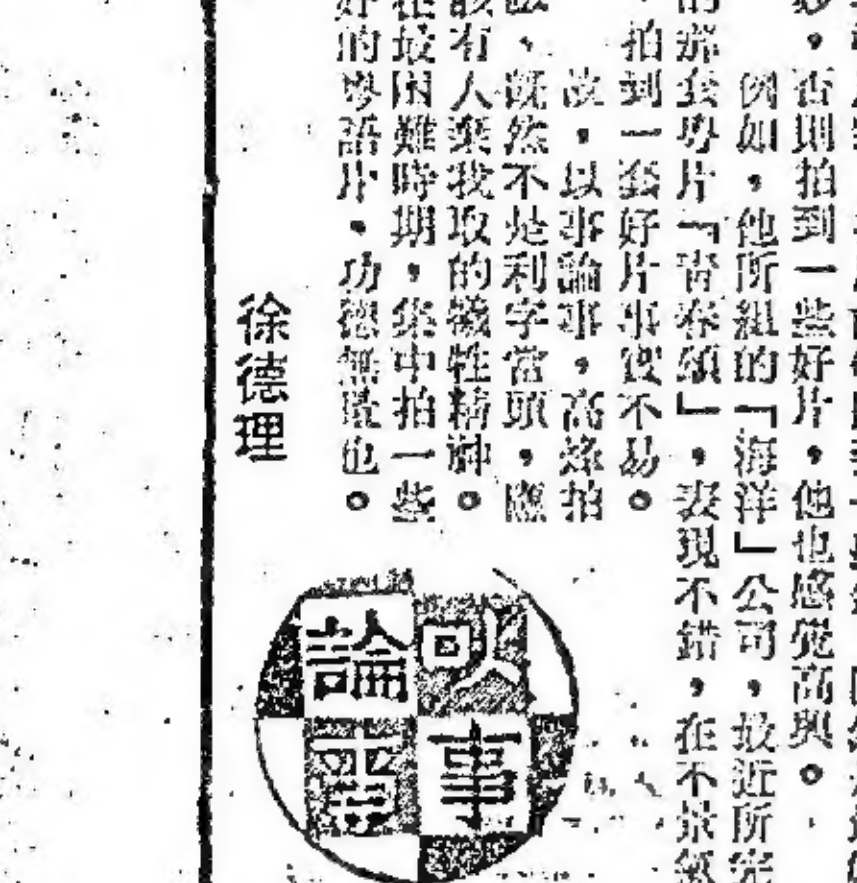 ,否則拍到一些好片,他也感覺高興。
例如,他所組的「海洋」公司,最近所完
的那套粵片「青春頌」,表現不錯,在不景氣
,拍到一套好片事實不易。
故,以事論事,高烽拍
、既然不是利字當頭,應
該有人棄我取的犧牲精神。
在最困難時期,集中拍一些
好的粵語片,功德無量也。
徐德理
以事
論事